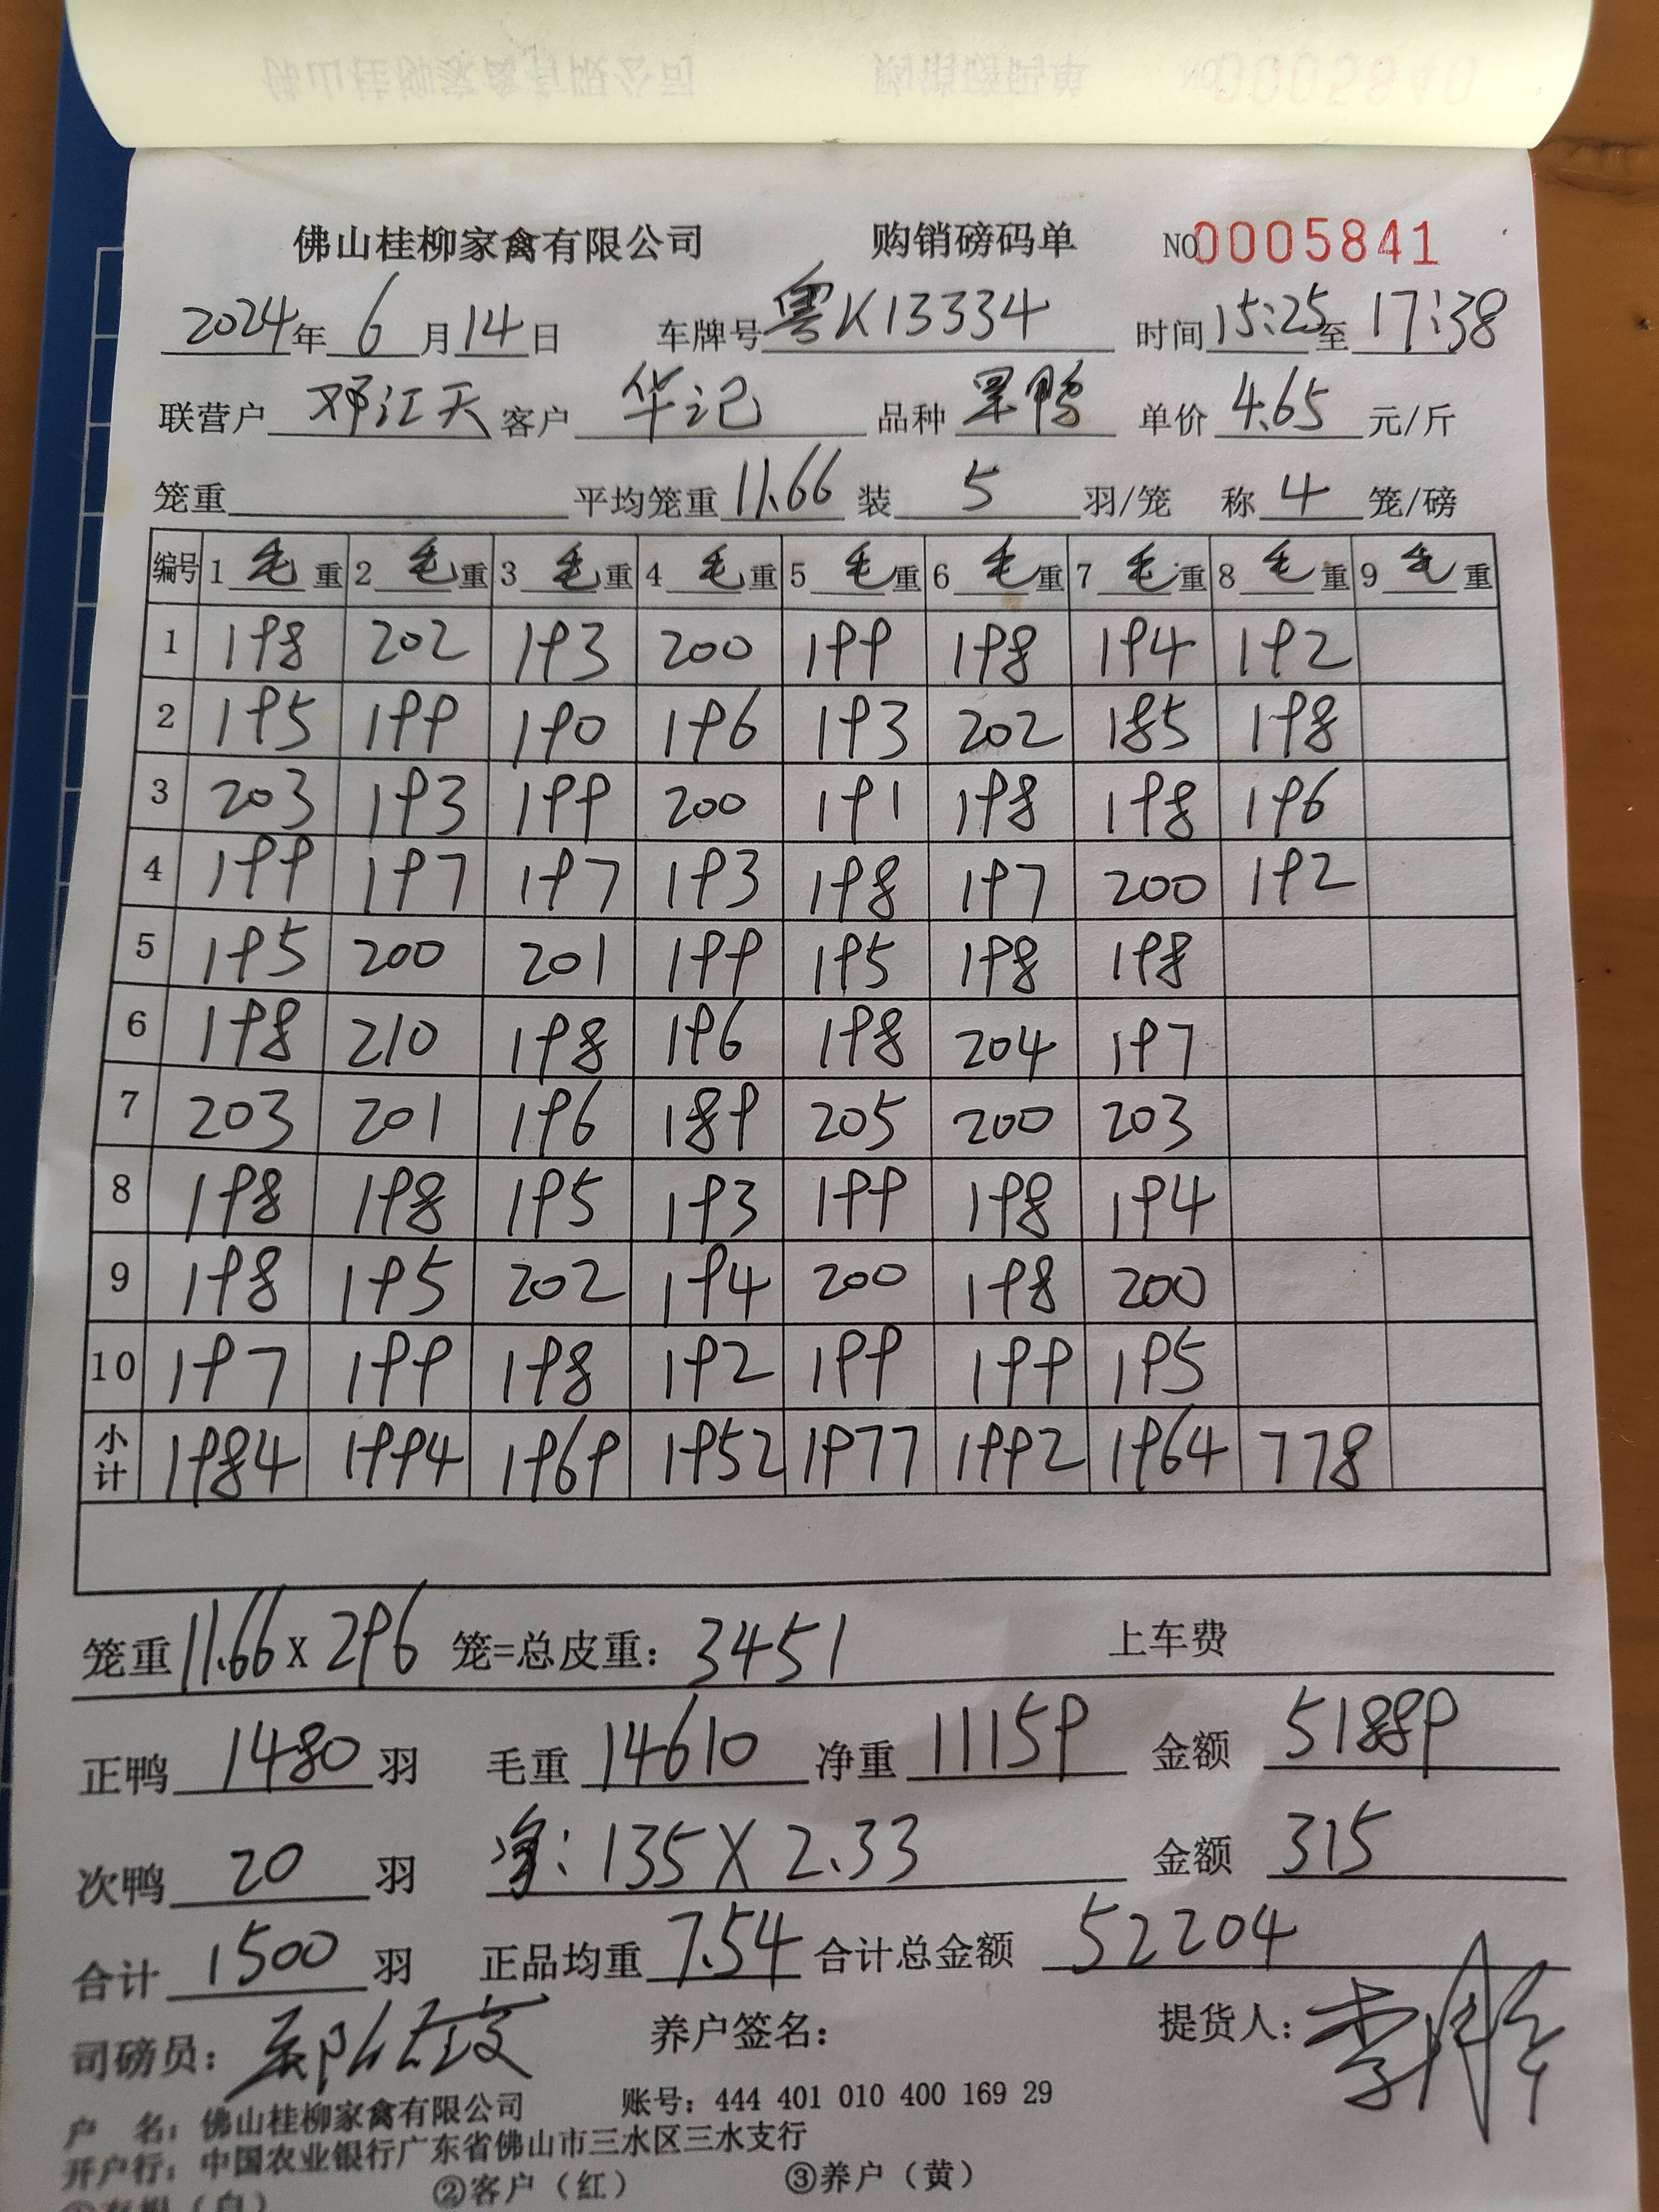 佛山桂柳家禽有限公司 购销磅码单 NO0005841
2024年 6 月 14 日 车牌号 粤K13334 时间 15:25 至 17:38
联营户 邓江天 客户 华记 品种 果鸭 单价 4.65 元/斤
笼重 平均笼重 11.66 装 5 羽/笼 称 4 笼/磅
编号 1 毛 重 2 毛 重 3 毛 重 4 毛 重 5 毛 重 6 毛 重 7 毛 重 8 毛 重 9 毛 重
1 198 202 193 200 199 198 194 192
2 195 199 190 196 193 202 185 198
3 203 193 199 200 191 198 198 196
4 199 197 197 193 198 197 200 192
5 195 200 201 199 195 198 198
6 198 210 198 196 198 204 197
7 203 201 196 189 205 200 203
8 198 198 195 193 199 198 194
9 198 195 202 194 200 198 200
10 197 199 198 192 199 199 195
小计 1984 1994 1969 1952 1977 1992 1964 778
笼重 11.66 x 296 笼=总皮重: 3451 上车费
正鸭 1480 羽 毛重 14610 净重 11159 金额 51889
次鸭 20 羽 净: 135 X 2.33 金额 315
合计 1500 羽 正品均重 7.54 合计总金额 52204
司磅员: 养户签名: 提货人: 李
户 名: 佛山桂柳家禽有限公司 账号: 444 401 010 400 169 29
开户行: 中国农业银行广东省佛山市三水区三水支行
②客户（红） ③养户（黄）